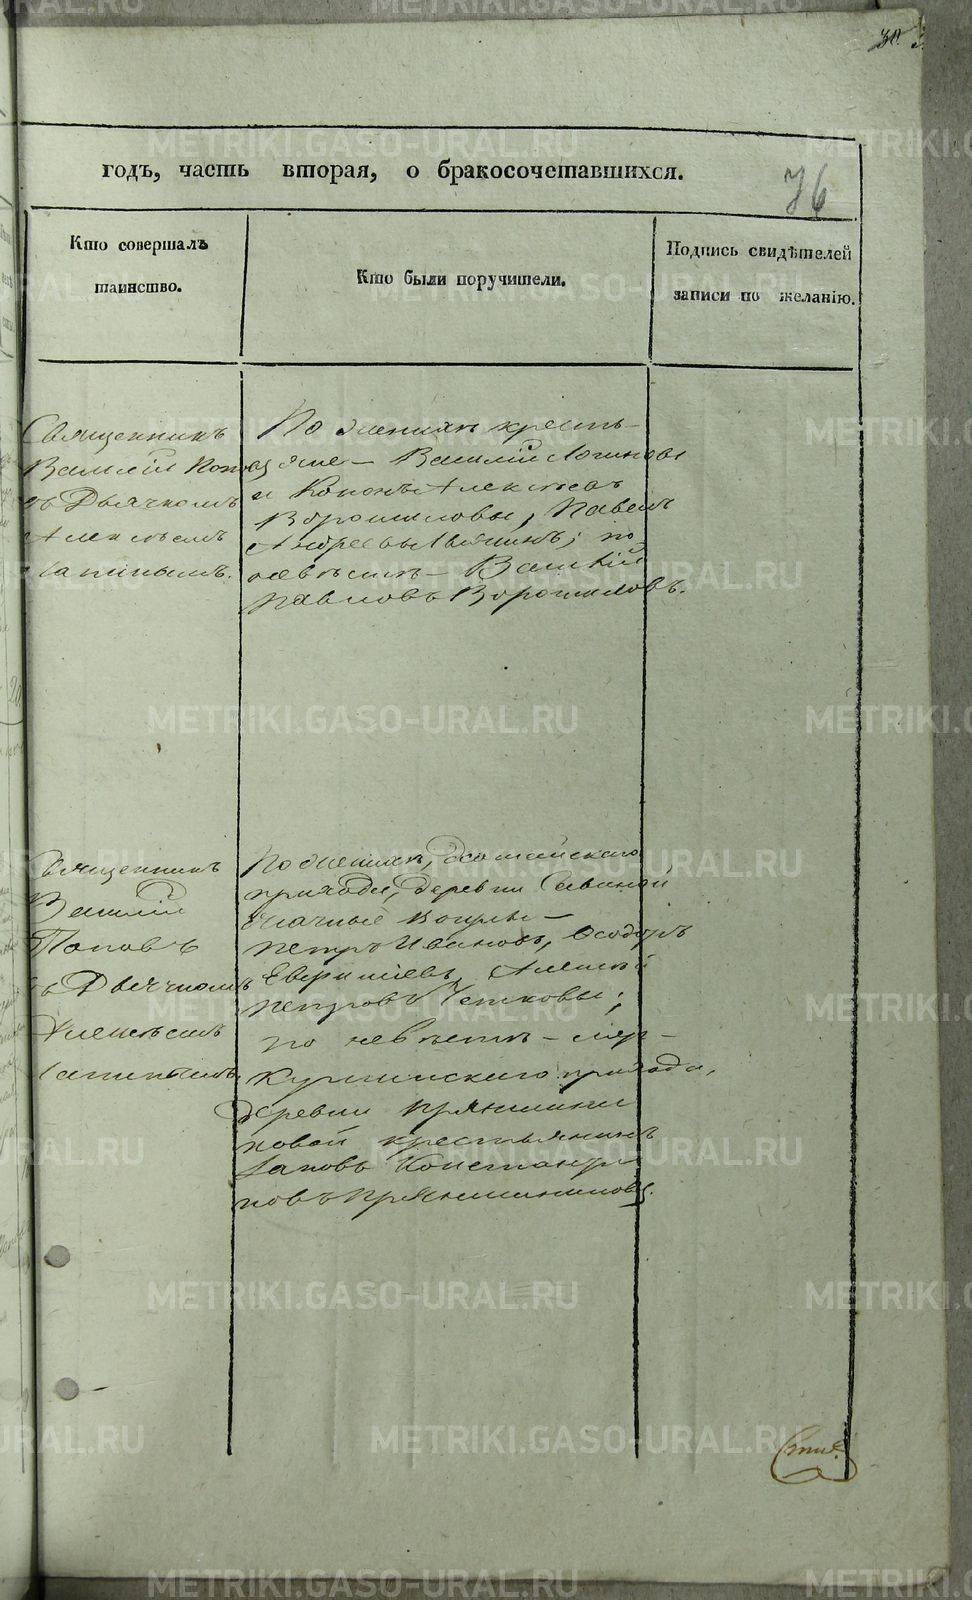 годъ, часть вторая, о бракосочетавшихся.
76
Кто совершалъ
таинство.
Кто были поручители.
Подпись свидѣтелей
записи по желанію.
Священникъ
Василій Попов
съ Дьячкомъ
Алексѣемъ
По женихѣ кресть-
яне - Василій Логиновъ
и Кононъ Алексѣевъ
Ворошиловы, Павелъ
Андреевъ; по
невѣстѣ - Василій
Павловъ Ворошиловъ.
Священникъ
Василій
Поповъ
съ Дьячкомъ
Алексѣемъ
По женихѣ,
прихода, деревни
ясачные Вогулы -
Петръ Ивановъ, Ѳеодоръ
Алексѣй
Петровъ
по невѣстѣ - Мур-
кушинскаго прихода,
деревни Пряниши
новой крестьянинъ
Іаковъ Константи
новъ Прянишниковъ.
METRIKI.GASO-URAL.RU